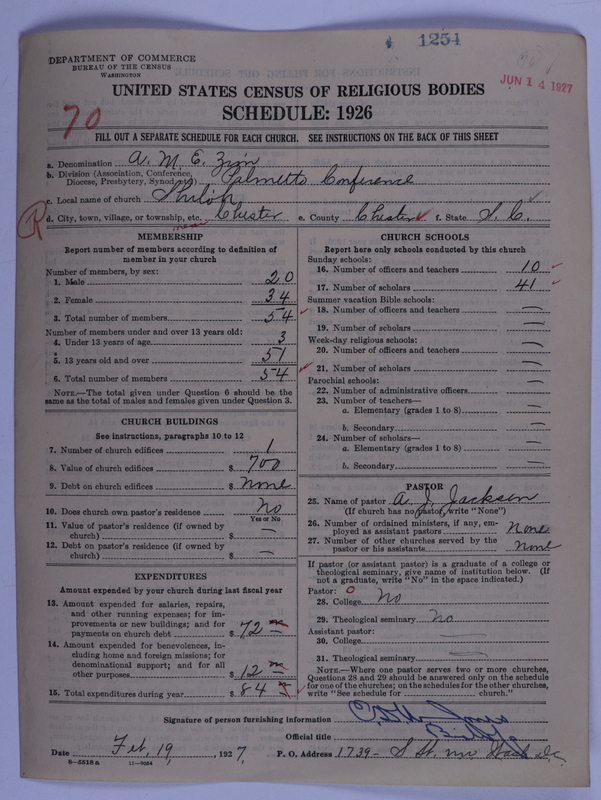 1254
DEPARTMENT OF COMMERCE
BUREAU OF THE CENSUS
WASHINGTON
JUN 14 1927
UNITED STATES CENSUS OF RELIGIOUS BODIES
SCHEDULE: 1926
70
FILL OUT A SEPARATE SCHEDULE FOR EACH CHURCH. SEE INSTRUCTIONS ON THE BACK OF THIS SHEET
a. Denomination A. M. E. Zion
b. Division (Association, Conference, Diocese, Presbytery, Synod, etc.) Palmetto Conference
c. Local name of church Shiloh
R d. City, town, village, or township, etc. near Chester e. County Chester f. State S. C.
MEMBERSHIP
Report number of members according to definition of
member in your church
Number of members, by sex:
1. Male 20
2. Female 34
3. Total number of members 54
Number of members under and over 13 years old:
4. Under 13 years of age 3
5. 13 years old and over 51
6. Total number of members 54
NOTE.—The total given under Question 6 should be the
same as the total of males and females given under Question 3.
CHURCH BUILDINGS
See instructions, paragraphs 10 to 12
7. Number of church edifices 1
8. Value of church edifices $ 700
9. Debt on church edifices $ None
10. Does church own pastor's residence No
Yes or No
11. Value of pastor's residence (if owned by
church) $ —
12. Debt on pastor's residence (if owned by
church) $ —
EXPENDITURES
Amount expended by your church during last fiscal year
13. Amount expended for salaries, repairs,
and other running expenses; for im-
provements or new buildings; and for
payments on church debt $ 72
14. Amount expended for benevolences, in-
cluding home and foreign missions; for
denominational support; and for all
other purposes $ 12
15. Total expenditures during year $ 84
CHURCH SCHOOLS
Report here only schools conducted by this church
Sunday schools:
16. Number of officers and teachers 10
17. Number of scholars 41
Summer vacation Bible schools:
18. Number of officers and teachers —
19. Number of scholars —
Week-day religious schools:
20. Number of officers and teachers —
21. Number of scholars —
Parochial schools:
22. Number of administrative officers —
23. Number of teachers—
a. Elementary (grades 1 to 8) —
b. Secondary —
24. Number of scholars—
a. Elementary (grades 1 to 8) —
b. Secondary —
PASTOR
25. Name of pastor A. J. Jackson
(If church has no pastor, write "None")
26. Number of ordained ministers, if any, em-
ployed as assistant pastors None
27. Number of other churches served by the
pastor or his assistants None
If pastor (or assistant pastor) is a graduate of a college or
theological seminary, give name of institution below. (If
not a graduate, write "No" in the space indicated.)
Pastor: 0
28. College No
29. Theological seminary No
Assistant pastor:
30. College —
31. Theological seminary —
NOTE.—Where one pastor serves two or more churches,
Questions 28 and 29 should be answered only on the schedule
for one of the churches; on the schedules for the other churches,
write "See schedule for church."
Signature of person furnishing information
Official title
Date Feb. 19, 1927. P. O. Address 1739 - S St. nw. Wash D.C.
8-5518a 11-9084